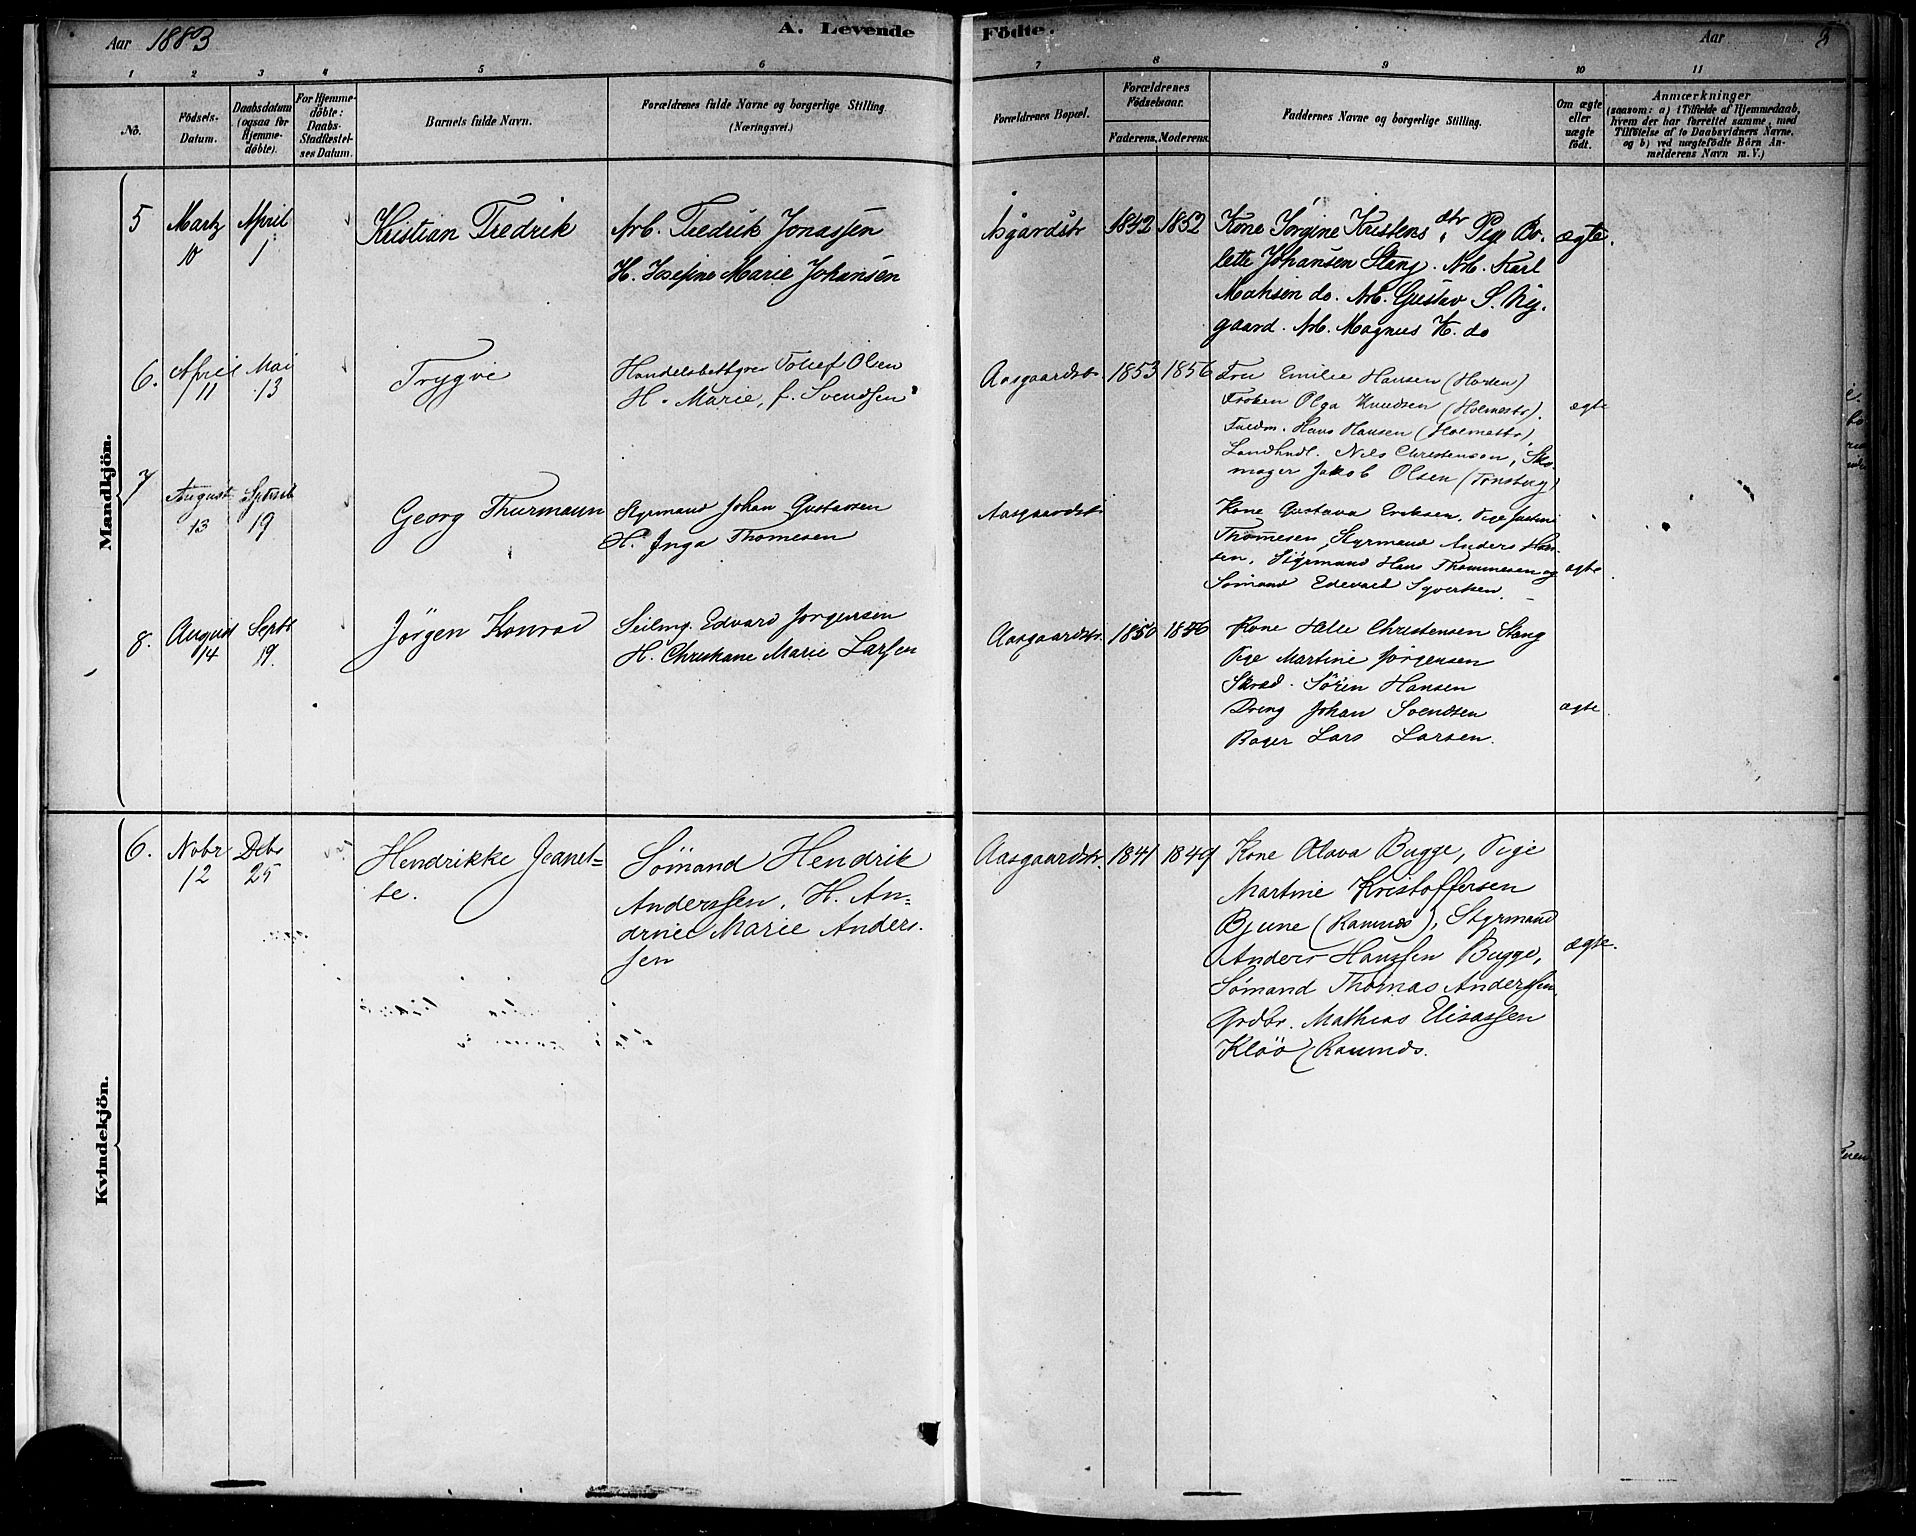 Aar 1883
A. Levende Födte.
Aar
3
1 2 3 4 5 6 7 8 9 10 11
No.
Födsels-
Datum.
Daabsdatum
(ogsaa for
Hjemme-
döbte).
For Hjemme-
döbte:
Daabs-
Stadfæstel-
ses Datum.
Barnets fulde Navn.
Forældrenes fulde Navne og borgerlige Stilling.
(Næringsvei.)
Forældrenes Bopæl.
Forældrenes
Födselsaar.
Faderens. Moderens.
Faddernes Navne og borgerlige Stilling.
Om ægte
eller
uægte
födt.
Anmærkninger
(saasom: a) i Tilfælde af Hjemmedaab,
hvem der har forrettet samme, med
Tilföielse af to Daabsvidners Navne.
og b) ved uægtefödte Börn An-
melderens Navn m. V.)
Mandkjön.
5
Martz
10
April
1
Kristian Fredrik
Arb. Fredrik Jonassen
H. Josefine Marie Johansen
Åsgårdstr
1842 1852
Kone Jörgine Kristensdtr, Pige Bo-
lette Johansen Stang. Arb. Karl
do. Arb. Gustav S. Ny-
gaard. Arb. Magnus K. do
ægte.
6.
April
11
Mai
13
Trygve
Handelsbettyrer Tollef Olsen
H. Marie, f. Svendsen
Aasgaardstr.
1853 1856
Fru Emilie Hansen (Horten)
Fröken Olga Knudsen (Holmestr).
Fuldm. Hans Hansen (Holmestr),
Landhndl. Nils Christensen, Sko-
mager Jakob Olsen (Tönsberg)
ægte
7
August
13
Septemb
19
Georg Thurmann
Styrmand Johan Gustavsen
H. Inga Thomesen
Aasgaardstr
Kone Gustava Eriksen, Pige Justine
Thommesen, Styrmand Anders Han-
sen, Styrmand Hans Thommesen og
Sömand Edevard Syvertsen.
ægte
8.
August
14
Septr
19.
Jörgen Konrad
Seilmg. Edvard Jorgensen
H. Christiane Marie Larsen
Aasgaardstr.
1850 1856
Kone Helle Christensen Stang
Pige Martine Jörgensen
Skræd. Sören Hansen
Dreng Johan Svendsen
Bager Lars Larsen.
ægte
Kvindekjön.
6.
Nobr
12
Debr
25
Hendrikke Jeanet-
te.
Sömand Hendrik
Anderssen, H. An-
drine Marie Anders-
sen
Aasgaardstr.
1841 1849
Kone Olava Bugge, Pige
Martine Kristoffersen
Bjune (Ramnæs), Styrmand
Anders Hanssen Bugge,
Sömand Thomas Anderssen,
Grdbr. Mathias Elisassen
Klöo (Ramnæs.
ægte.